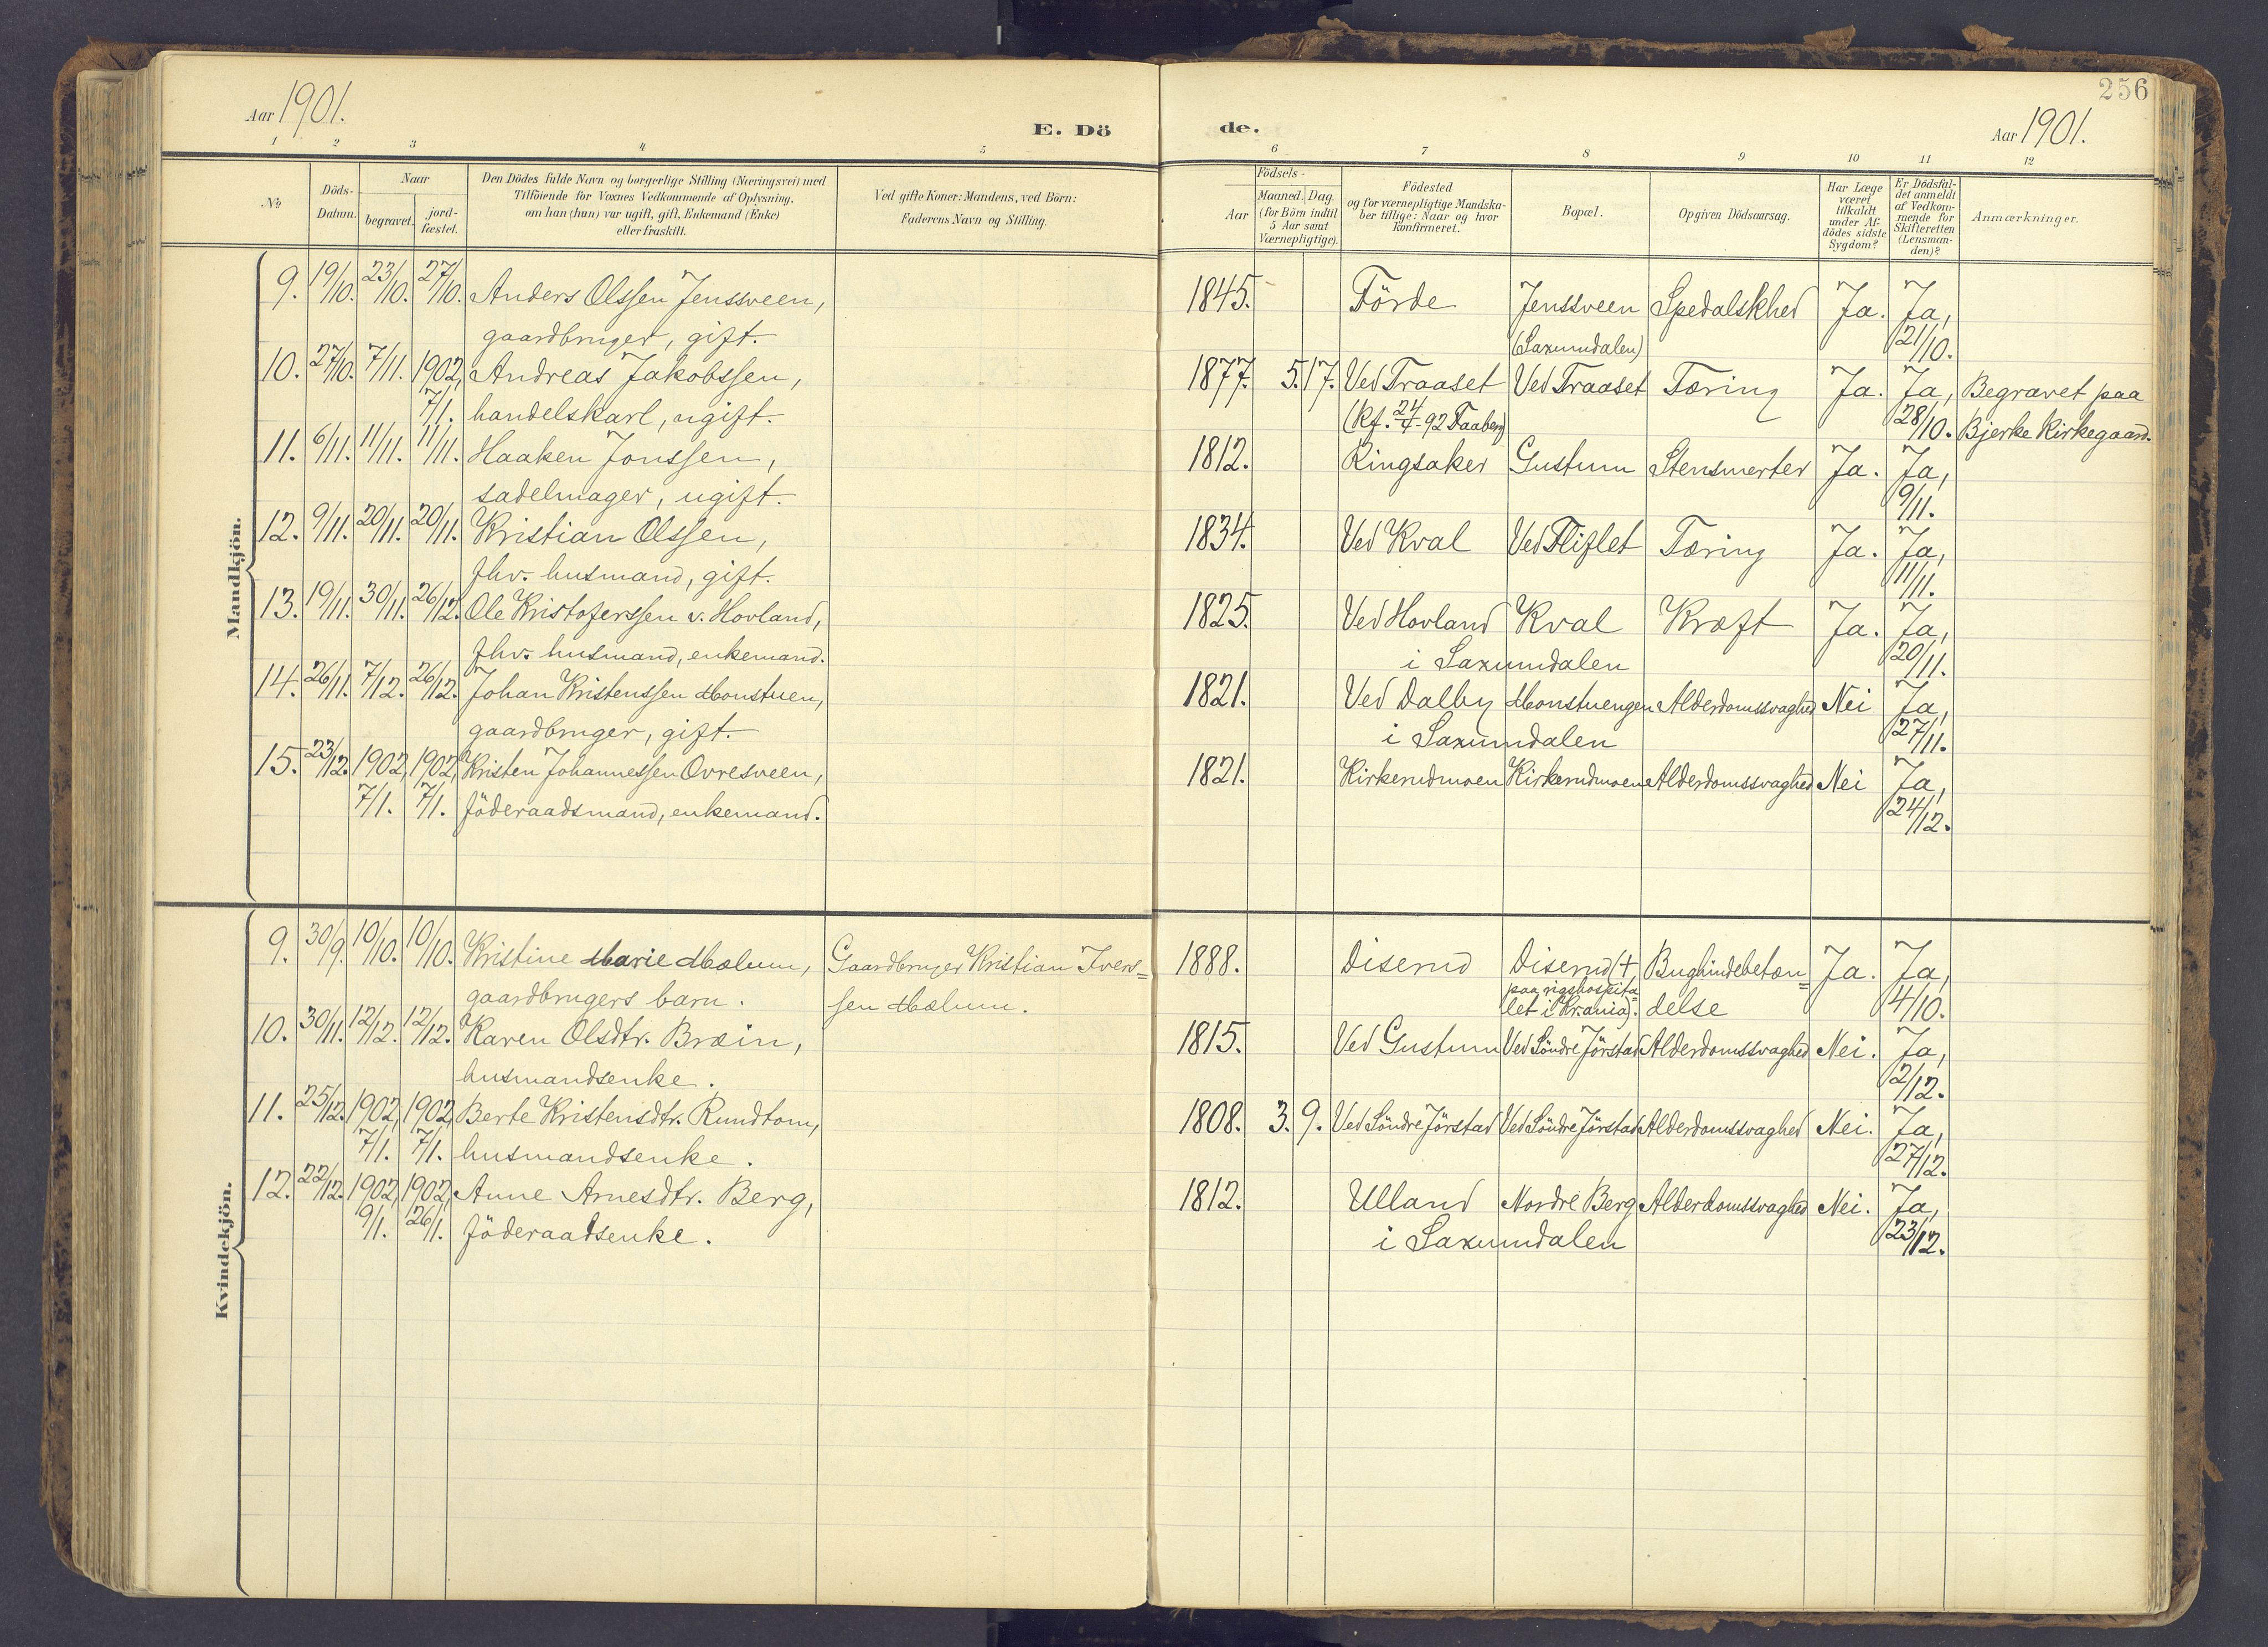 256
Aar 1901.
E. Dö
de.
Aar 1901.
1 2 3 4 5 6 7 8 9 10 11 12
No
Döds-
Datum.
Naar
begravet.
jord-
fæstet.
Den Dödes fulde Navn og borgerlige Stilling (Næringsvei) med
Tilföiende for Voxnes Vedkommende af Oplysning,
om han (hun) var ugift, gift, Enkemand (Enke)
eller fraskilt.
Ved gifte Koner: Mandens, ved Börn:
Faderens Navn og Stilling.
Födsels-
Aar
Maaned. Dag.
(for Börn indtil
5 Aar samt
Værnepligtige).
Födested
og for værnepligtige Mandska-
ber tillige: Naar og hvor
konfirmeret.
Bopæl.
Opgiven Dödsaarsag.
Har Læge
været
tilkaldt
under Af-
dödes sidste
Sygdom?
Er Dödsfal-
det anmeldt
af Vedkom-
mende for
Skifteretten
(Lensman-
den)?
Anmærkninger.
Mandkjön.
9. 19/10. 23/10. 27/10. Anders Olssen Jenssveen, 1845. Förde Jenssveen Spedalskhed Ja. Ja,
gaardbruger, gift. (Saxumdalen) 21/10.
10. 27/10. 7/11. 1902, Andreas Jakobssen, 1877. 5. 17. Ved Traaset Ved Traaset Tæring Ja. Ja, Begravet paa
7/1. handelskarl, ugift. (Kf. 24/4-92 Faaberg) 28/10. Bjerke Kirkegaard.
11. 6/11. 11/11. 11/11. Haaken Jonssen, 1812. Ringsaker Gustum Stensmerter Ja. Ja,
sadelmager, ugift. 9/11.
12. 9/11. 20/11. 20/11. Kristian Olssen, 1834. Ved Kval Ved Fliflet Tæring Ja. Ja,
fhv. husmand, gift. 11/11.
13. 19/11. 30/11. 26/12. Ole Kristoferssen v. Hovland, 1825. Ved Hovland Kval Kræft Ja. Ja,
fhv. husmand, enkemand. i Saxumdalen 20/11.
14. 26/11. 7/12. 26/12. Johan Kristenssen Monstuen, 1821. Ved Dalby Monstuengen Alderdomssvaghed Nei Ja,
gaardbruger, gift. i Saxumdalen 27/11.
15. 23/12. 1902, 1902, Kristen Johannessen Ovresveen, 1821. Kirkerudmoen Kirkerudmoen Alderdomssvaghed Nei Ja,
7/1. 7/1. föderaadsmand, enkemand. 24/12.
Kvindekjön.
9. 30/9. 10/10. 10/10. Kristine Marie Mælum, Gaardbruger Kristian Ivers= 1888. Diserud Diserud (+ Bughindebetæn= Ja. Ja,
gaardbrugers barn. sen Mælum. paa rigshospita= delse 4/10.
let i Kr.ania).
10. 30/11. 12/12. 12/12. Karen Olsdtr. Bræin, 1815. Ved Gustum Ved Söndre Jörstad Alderdomssvaghed Nei. Ja,
husmandsenke. 2/12.
11. 25/12. 1902, 1902, Berte Kristensdtr. Rundtom, 1808. 3. 9. Ved Söndre Jörstad Ved Söndre Jörstad Alderdomssvaghed Nei. Ja,
7/1. 7/1. husmandsenke. 27/12.
12. 22/12. 1902, 1902, Anne Arnesdtr. Berg, 1812. Ulland Nordre Berg Alderdomssvaghed Nei. Ja,
9/1. 26/1. föderaadsenke. i Saxumdalen 23/12.